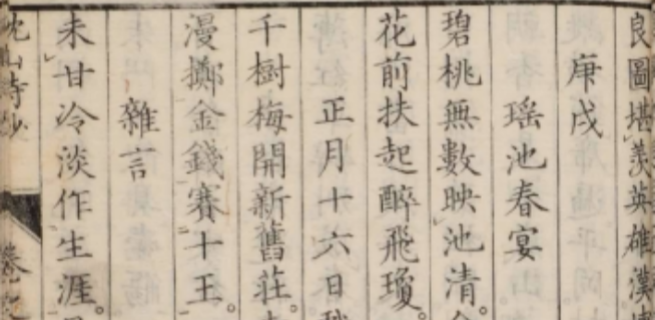 良圖堪羨英雄漢
庚戌
瑶池春宴
碧桃無數映池清。
花前扶起醉飛瓊。
正月十六日
千樹梅開新舊莊。
漫擲金錢賽十王。
雜言
未甘冷淡作生涯。